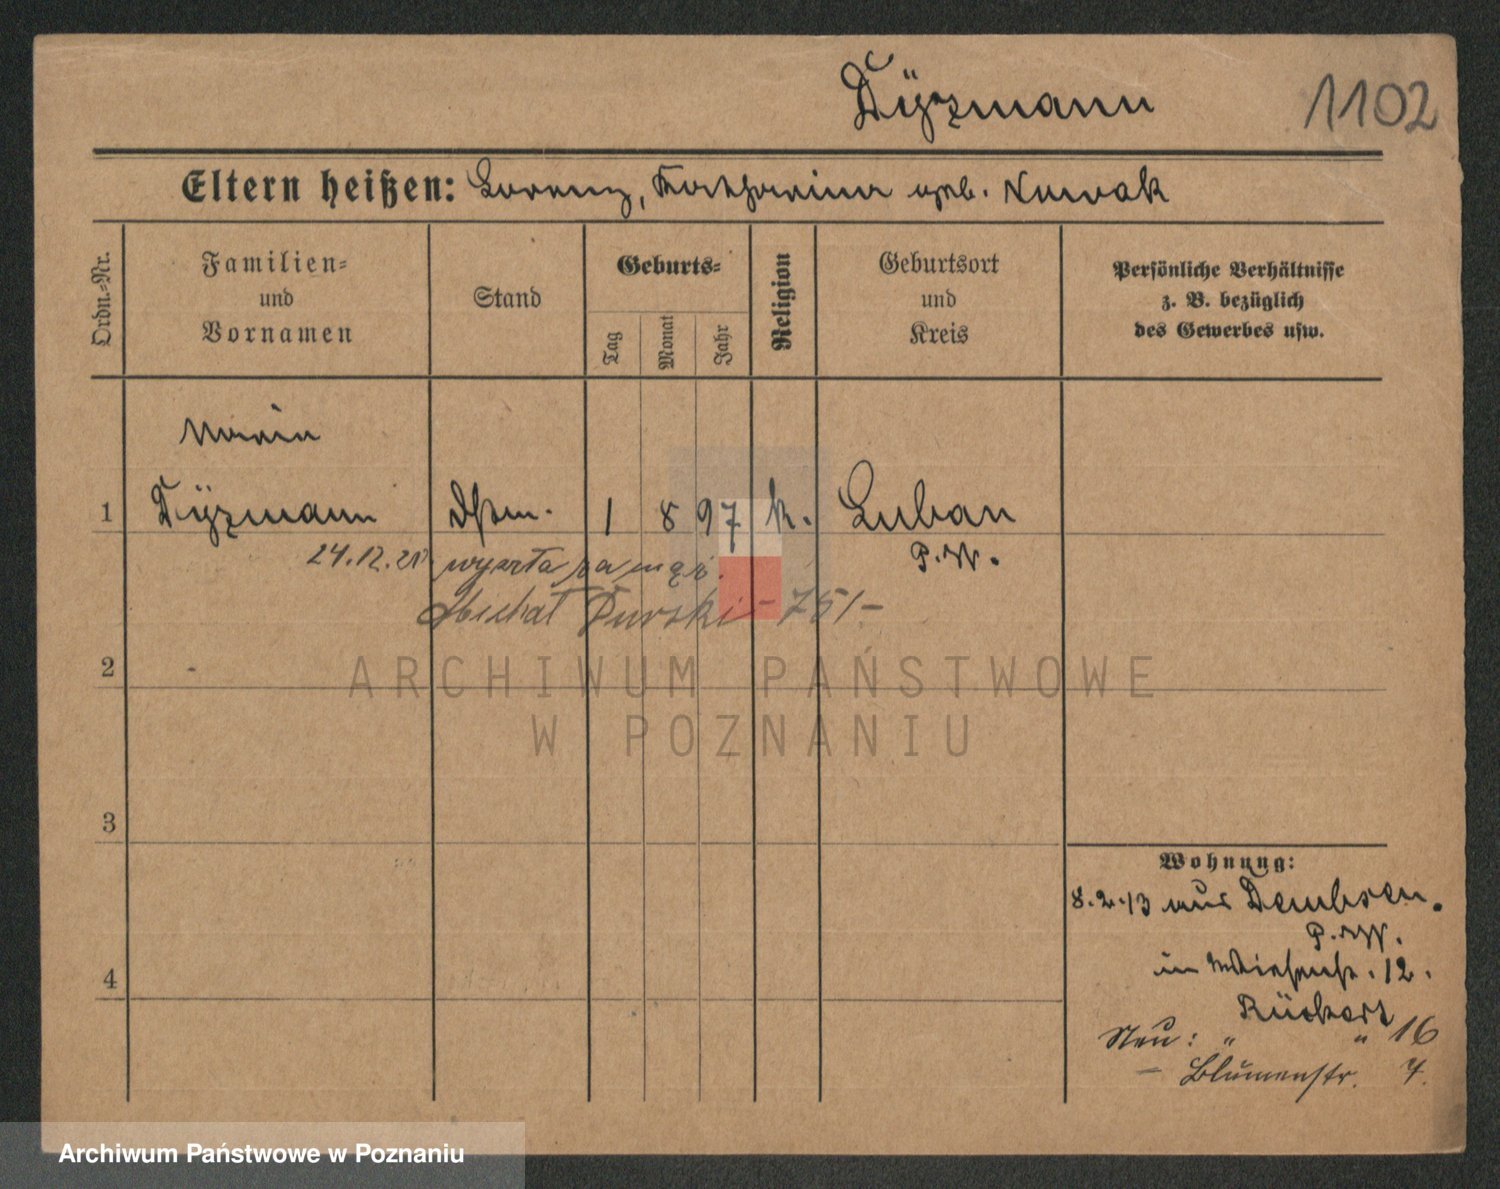 Dÿzmann 1102
Eltern heißen: Lorenz, Katharina geb. Nowak
Ordn.-Nr.
Familien-
und
Vornamen
Stand
Geburts-
Tag
Monat
Jahr
Religion
Geburtsort
und
Kreis
Persönliche Verhältnisse
z. B. bezüglich
des Gewerbes usw.
Maria
1 Dÿzmann 1 8 97 k. Luban
24.12.21 wyszła za mąż P.W.
Michał Durski - 751-
2
3
4
Wohnung:
8.2.13 aus Dembsen.
P.W.
in Wiesenstr. 12.
Rückert
Neu: " " 16
- Blumenstr. 7.
ARCHIWUM PAŃSTWOWE
W POZNANIU
Archiwum Państwowe w Poznaniu